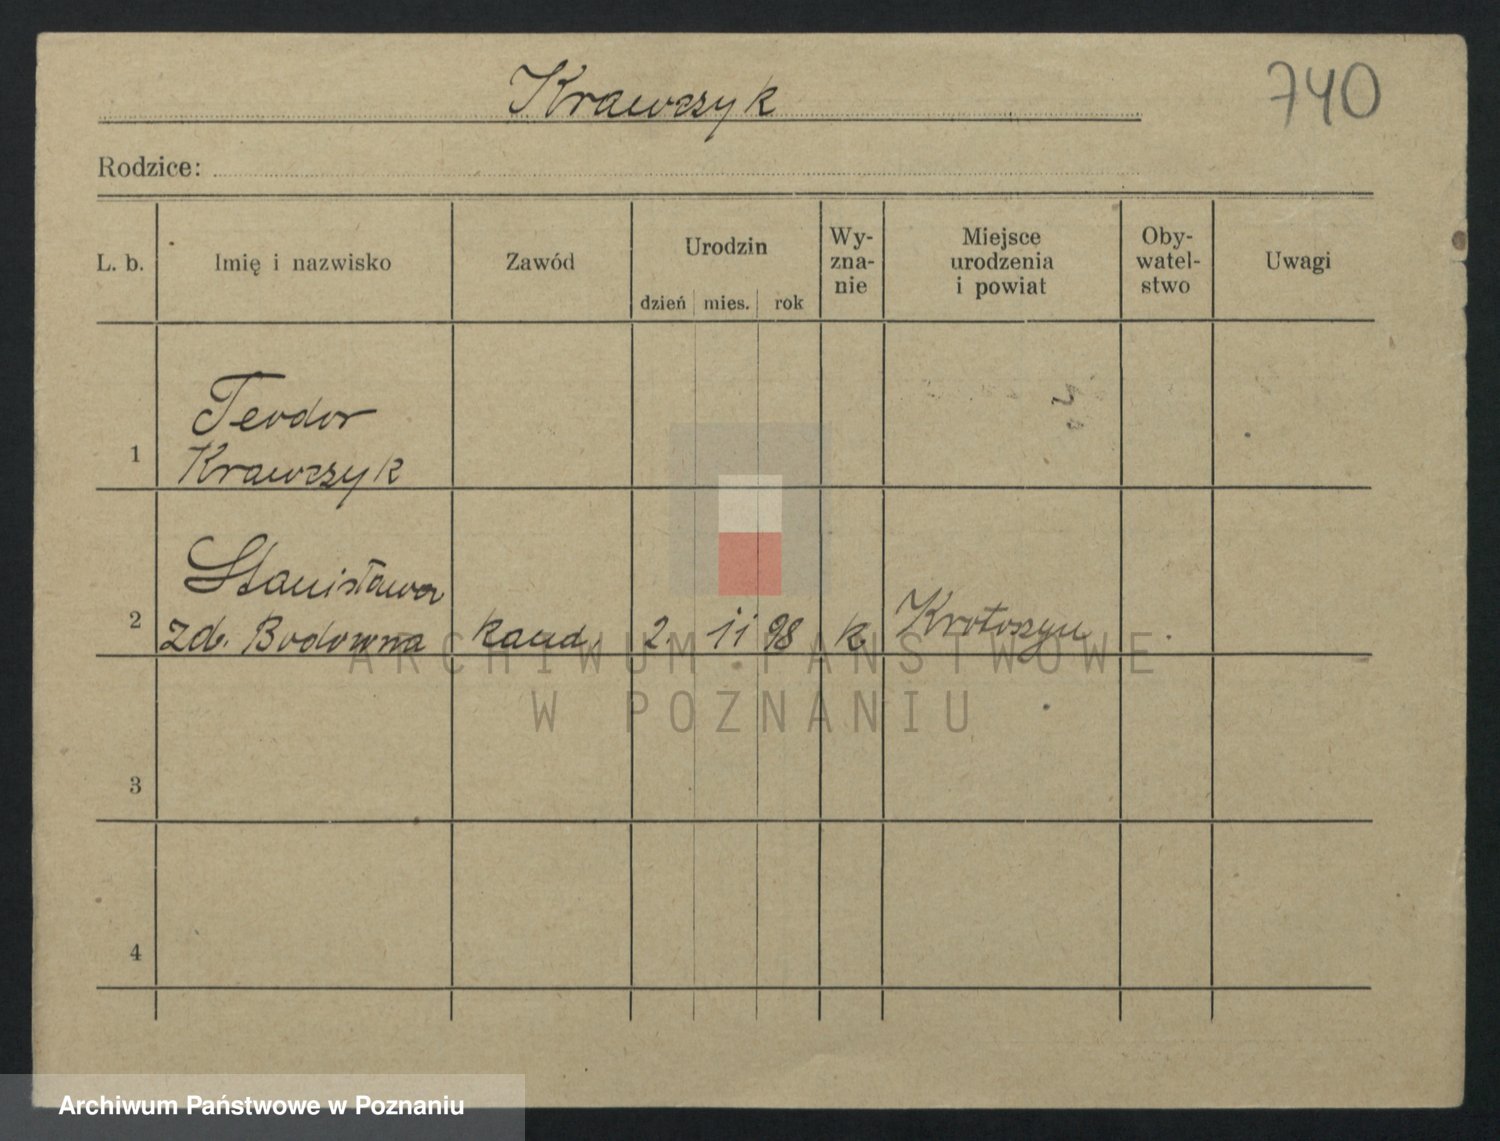 Krawczyk
740
Rodzice:
L. b.
Imię i nazwisko
Zawód
Urodzin
dzień
mies.
rok
Wy-
zna-
nie
Miejsce
urodzenia
i powiat
Oby-
watel-
stwo
Uwagi
1
Teodor
Krawczyk
2
Stanisława
zd. Bodowna
kand.
2.
11
98
k.
Krotoszyn
3
4
ARCHIWUM PAŃSTWOWE
W POZNANIU
Archiwum Państwowe w Poznaniu